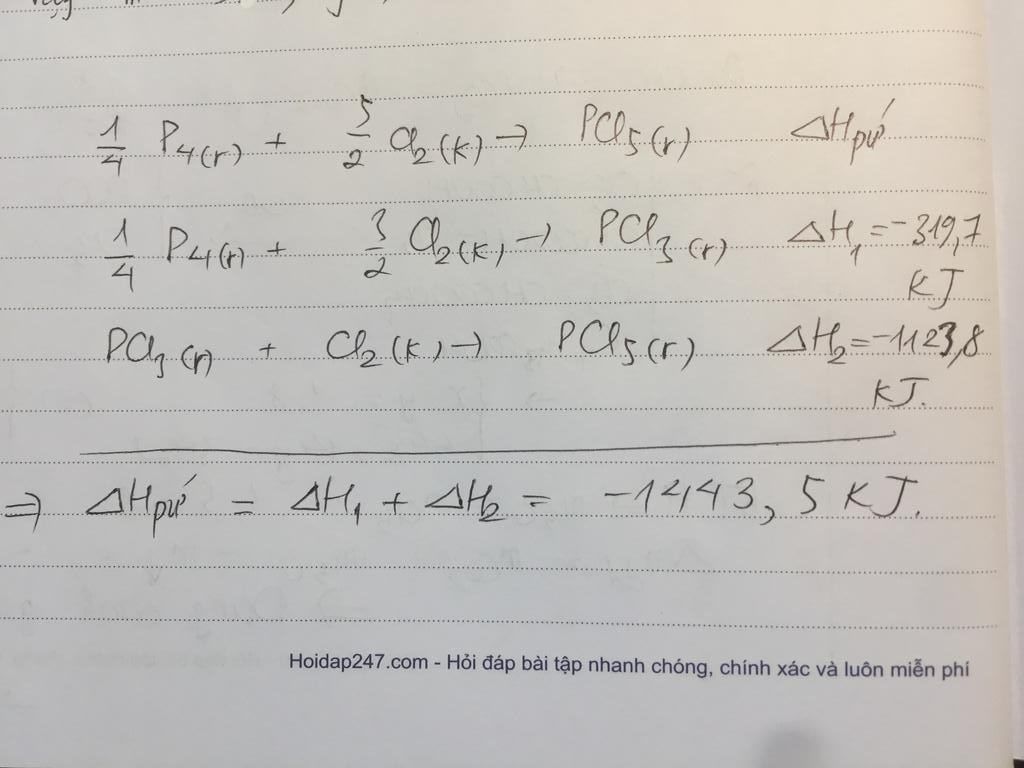 1/4 P4(r) + 5/2 Cl2(k) → PCl5(r) ΔHpứ
1/4 P4(r) + 3/2 Cl2(k) → PCl3(r) ΔH1 = -319,7
KJ
PCl3(r) + Cl2(k) → PCl5(r) ΔH2 = -1123,8
KJ.
⇒ ΔHpứ = ΔH1 + ΔH2 = -1443,5 KJ.
Hoidap247.com - Hỏi đáp bài tập nhanh chóng, chính xác và luôn miễn phí